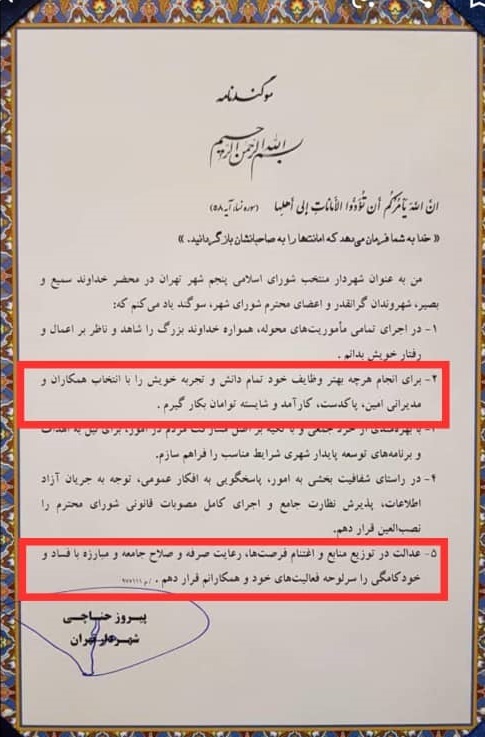 سوگندنامه
بسم الله الرحمن الرحیم
انَّ اللهَ یَأمُرُکُم أن تُؤَدُّوا الأماناتِ إلی أهلِها (سوره نساء آیه ۵۸)
« خدا به شما فرمان می‌دهد که امانت‌ها را به صاحبانشان بازگردانید. »
من به عنوان شهردار منتخب شورای اسلامی پنجم شهر تهران در محضر خداوند سمیع و
بصیر، شهروندان گرانقدر و اعضای محترم شورای شهر، سوگند یاد می‌کنم که:
۱- در اجرای تمامی مأموریت‌های محوله، همواره خداوند بزرگ را شاهد و ناظر بر اعمال و
رفتار خویش بدانم .
۲- برای انجام هرچه بهتر وظایف خود تمام دانش و تجربه خویش را با انتخاب همکاران و
مدیرانی امین، پاکدست، کارآمد و شایسته توامان بکار گیرم .
۳- با بهره‌مندی از خرد جمعی و با تکیه بر اصل مشارکت مردم در امور، برای نیل به اهداف
و برنامه‌های توسعه پایدار شهری شرایط مناسب را فراهم سازم.
۴- در راستای شفافیت بخشی به امور، پاسخگویی به افکار عمومی، توجه به جریان آزاد
اطلاعات، پذیرش نظارت جامع و اجرای کامل مصوبات قانونی شورای محترم را
نصب‌العین قرار دهم.
۵- عدالت در توزیع منابع و اغتنام فرصت‌ها، رعایت صرفه و صلاح جامعه و مبارزه با فساد و
خودکامگی را سرلوحه فعالیت‌های خود و همکارانم قرار دهم .
پیروز حناچی
شهردار تهران